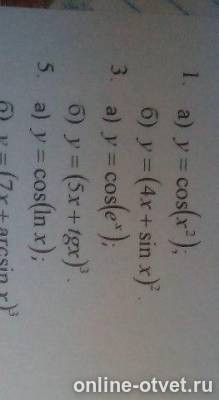 1. а) y = cos(x²);
б) y = (4x + sin x)².
3. а) y = cos(eˣ);
б) y = (5x + tgx)³.
5. а) y = cos(ln x);
б) y = (7x + arcsin x)³
online-otvet.ru